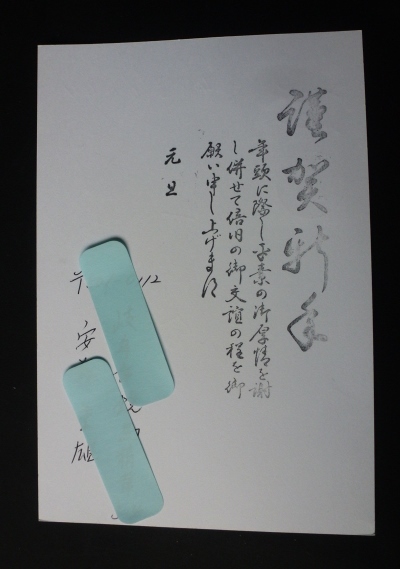 謹賀新年
年頭に際し平素の御厚情を謝
し併せて倍旧の御交誼の程を御
願い申し上げます
元旦
12
安
雄